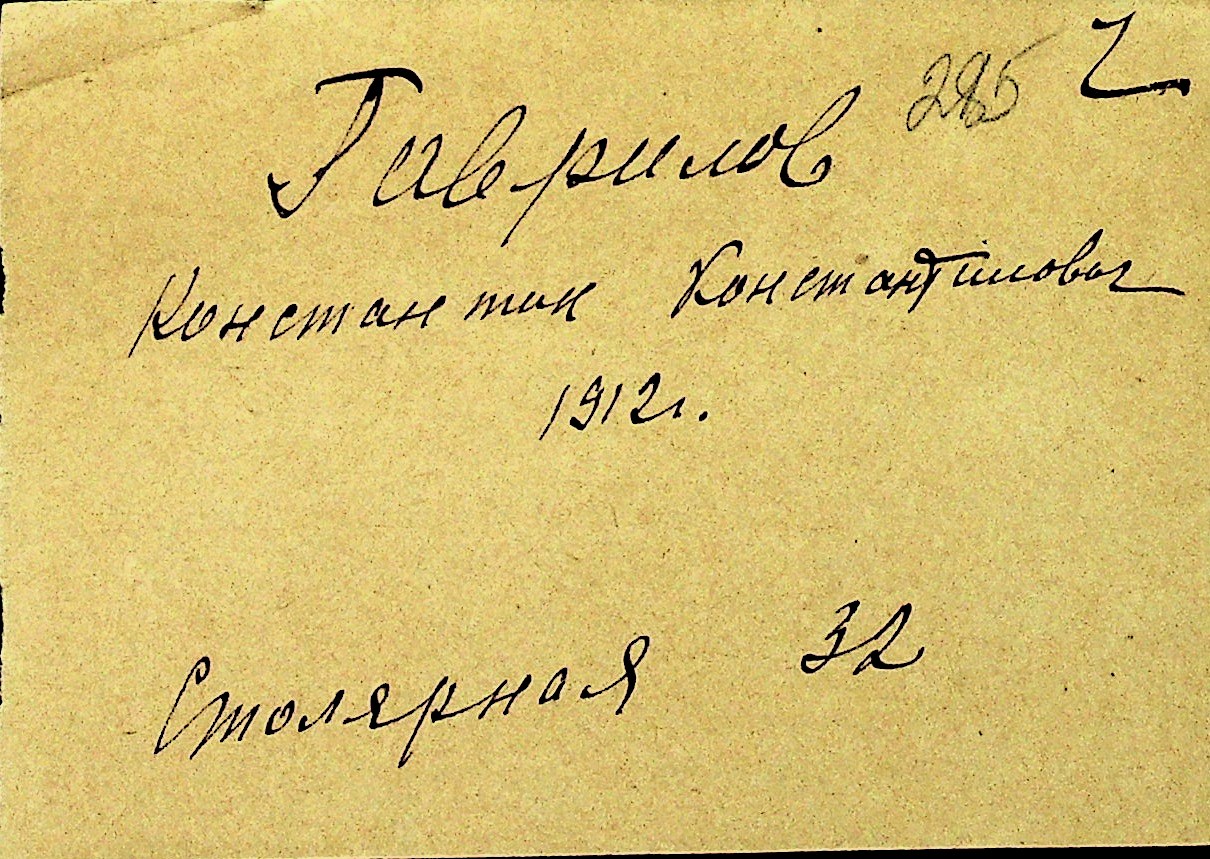 285 2
Гаврилов
Константин Константинович
1912г.
Столярная 32